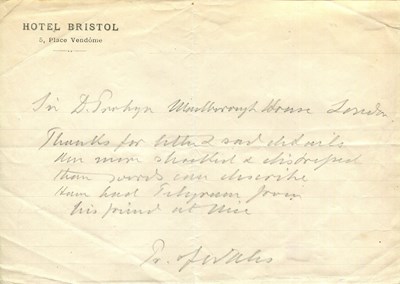 HOTEL BRISTOL
5, Place Vendôme
Sir D. Probyn Marlborough House London
Thanks for letter & sad details
Am more shocked & distressed
than words can describe
Have had Telegram from
his friend at Nice
Pr. of Wales